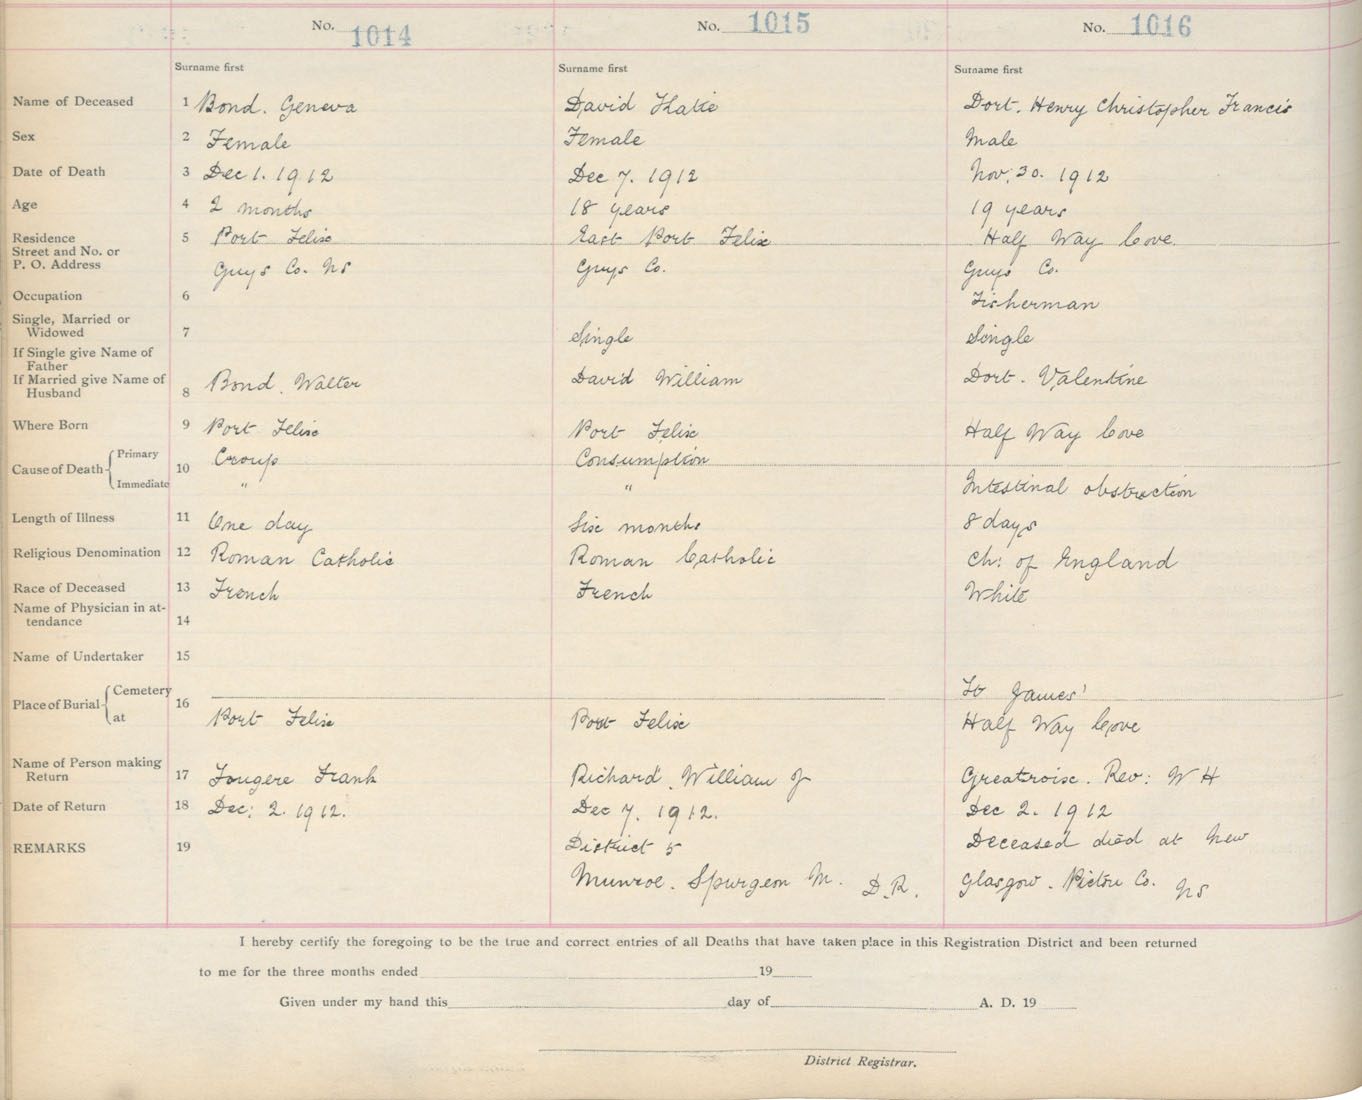 No. 1014 No. 1015 No. 1016
Surname first Surname first Surname first
Name of Deceased 1 Bond. Geneva David Katie Dort. Henry Christopher Francis
Sex 2 Female Female Male
Date of Death 3 Dec 1. 1912 Dec 7. 1912 Nov. 30. 1912
Age 4 2 months 18 years 19 years
Residence 5 Port Felix East Port Felix Half Way Cove.
Street and No. or
P. O. Address Guys Co. NS Guys Co. Guys Co.
Occupation 6 Fisherman
Single, Married or
Widowed 7 Single Single
If Single give Name of
Father
If Married give Name of
Husband 8 Bond. Walter David William Dort. Valentine
Where Born 9 Port Felix Port Felix Half Way Cove
Cause of Death 10 Primary Croup Consumption
Immediate " " Intestinal obstruction
Length of Illness 11 One day Six months 8 days
Religious Denomination 12 Roman Catholic Roman Catholic Ch: of England
Race of Deceased 13 French French White
Name of Physician in at-
tendance 14
Name of Undertaker 15
Place of Burial 16 Cemetery James'
at Port Felix Port Felix Half Way Cove
Name of Person making
Return 17 Fougere Frank Richard. William J Greatroix. Rev: W H
Date of Return 18 Dec: 2. 1912. Dec 7. 1912. Dec 2. 1912
REMARKS 19 District 5 Deceased died at New
Munroe. Spurgeon M. D.R. Glasgow. Pictou Co. NS
I hereby certify the foregoing to be the true and correct entries of all Deaths that have taken place in this Registration District and been returned
to me for the three months ended 19
Given under my hand this day of A. D. 19
District Registrar.